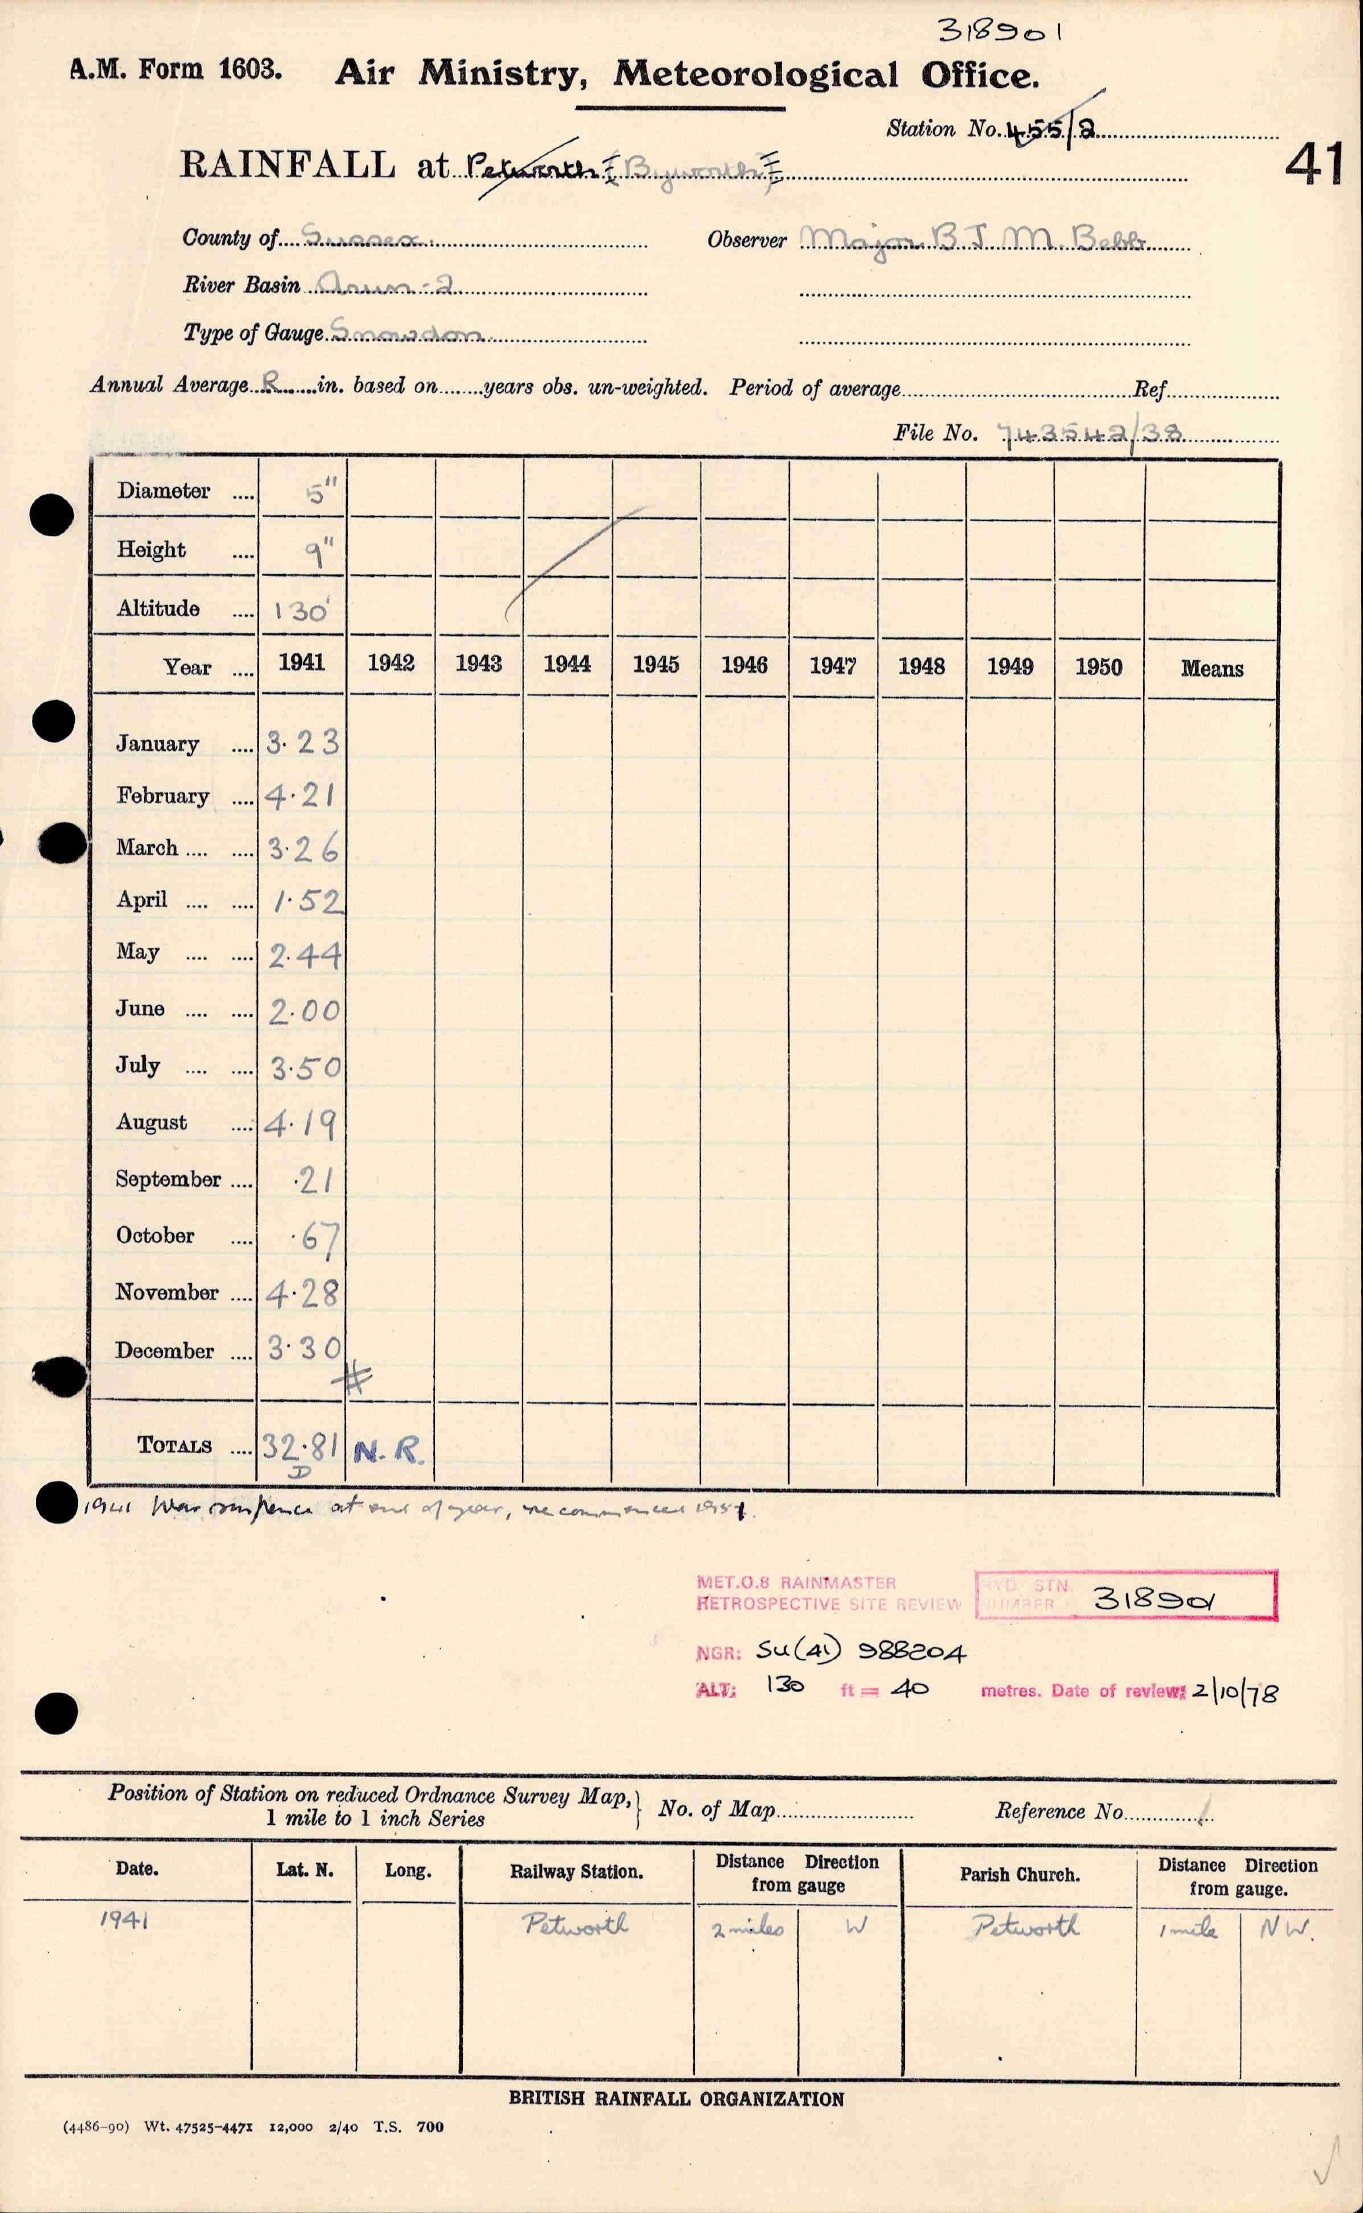 318901
A.M. Form 1603. Air Ministry, Meteorological Office.
Station No. 455/2
41
RAINFALL at Petworth [Byworth]
County of Sussex. Observer Major B J M. Bebb
River Basin Arun-2
Type of Gauge Snowdon
Annual Average R in. based on years obs. un-weighted. Period of average Ref.
File No. 743542/38
Diameter 5"
Height 9"
Altitude 130'
Year 1941 1942 1943 1944 1945 1946 1947 1948 1949 1950 Means
January 3.23
February 4.21
March 3.26
April 1.52
May 2.44
June 2.00
July 3.50
August 4.19
September .21
October .67
November 4.28
December 3.30
#
TOTALS 32.81 N.R.
D
1941 War at end of year, recommenced
MET.O.8 RAINMASTER
RETROSPECTIVE SITE REVIEW
HYD. STN.
NUMBER 318901
NGR: SU(41) 988204
ALT: 130 ft = 40 metres. Date of review: 2/10/78
Position of Station on reduced Ordnance Survey Map,
1 mile to 1 inch Series
No. of Map Reference No.
Date. Lat. N. Long. Railway Station. Distance Direction from gauge Parish Church. Distance Direction from gauge.
1941 Petworth 2 miles W Petworth 1 mile NW.
BRITISH RAINFALL ORGANIZATION
(4486-90) Wt. 47525-4471 12,000 2/40 T.S. 700